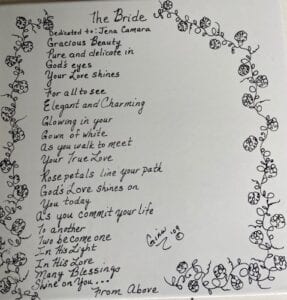 The Bride
Dedicated to: Jena Camara
Gracious Beauty
Pure and delicate in
God's eyes
Your Love shines
For all to see
Elegant and Charming
Glowing in your
Gown of white
As you walk to meet
Your True Love
Rose petals line your path
God's Love Shines on
You today
As you commit your life
To another
Two become one
In His Light
In His Love
Many Blessings
Shine on You...
From Above